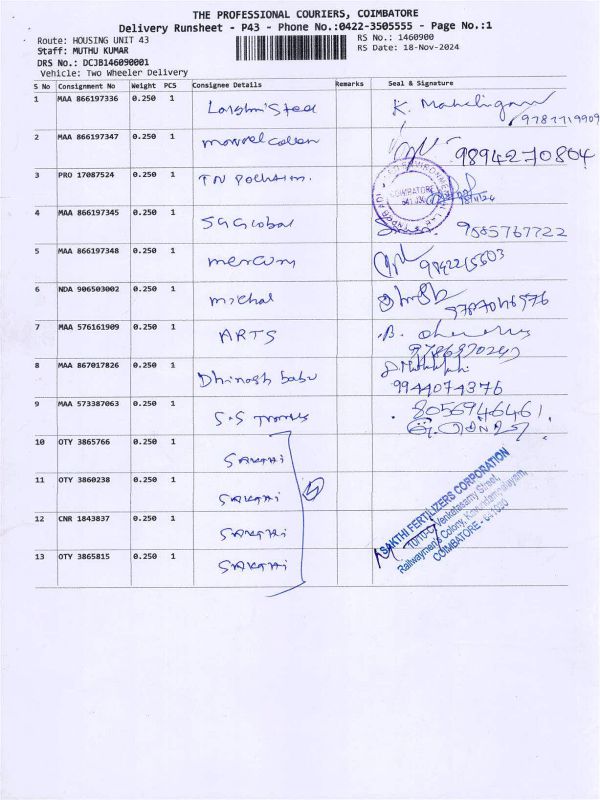 THE PROFESSIONAL COURIERS, COIMBATORE
Delivery Runsheet - P43 - Phone No.:0422-3505555 - Page No.:1
Route: HOUSING UNIT 43 RS No.: 1460900
Staff: MUTHU KUMAR RS Date: 18-Nov-2024
DRS No.: DCJB146090001
Vehicle: Two Wheeler Delivery
S No Consignment No Weight PCS Consignee Details Remarks Seal & Signature
1 MAA 866197336 0.250 1 K.
2 MAA 866197347 0.250 1 9894270804
3 PRO 17087524 0.250 1 TN
COIMBATORE
4 MAA 866197345 0.250 1 SG Global
5 MAA 866197348 0.250 1 mercury
6 NDA 906503002 0.250 1 michal
7 MAA 576161909 0.250 1 ARTS B.
8 MAA 867017826 0.250 1 Dhinosh babu
9944074376
9 MAA 573387063 0.250 1 S.S 8056946461
10 OTY 3865766 0.250 1 SAKTHI
11 OTY 3860238 0.250 1 SAKTHI 4
12 CNR 1843837 0.250 1 SAKTHI
13 OTY 3865815 0.250 1 SAKTHI
SAKTHI FERTILIZERS CORPORATION
Venkatasamy Street,
Railwaymen's Colony,
COIMBATORE